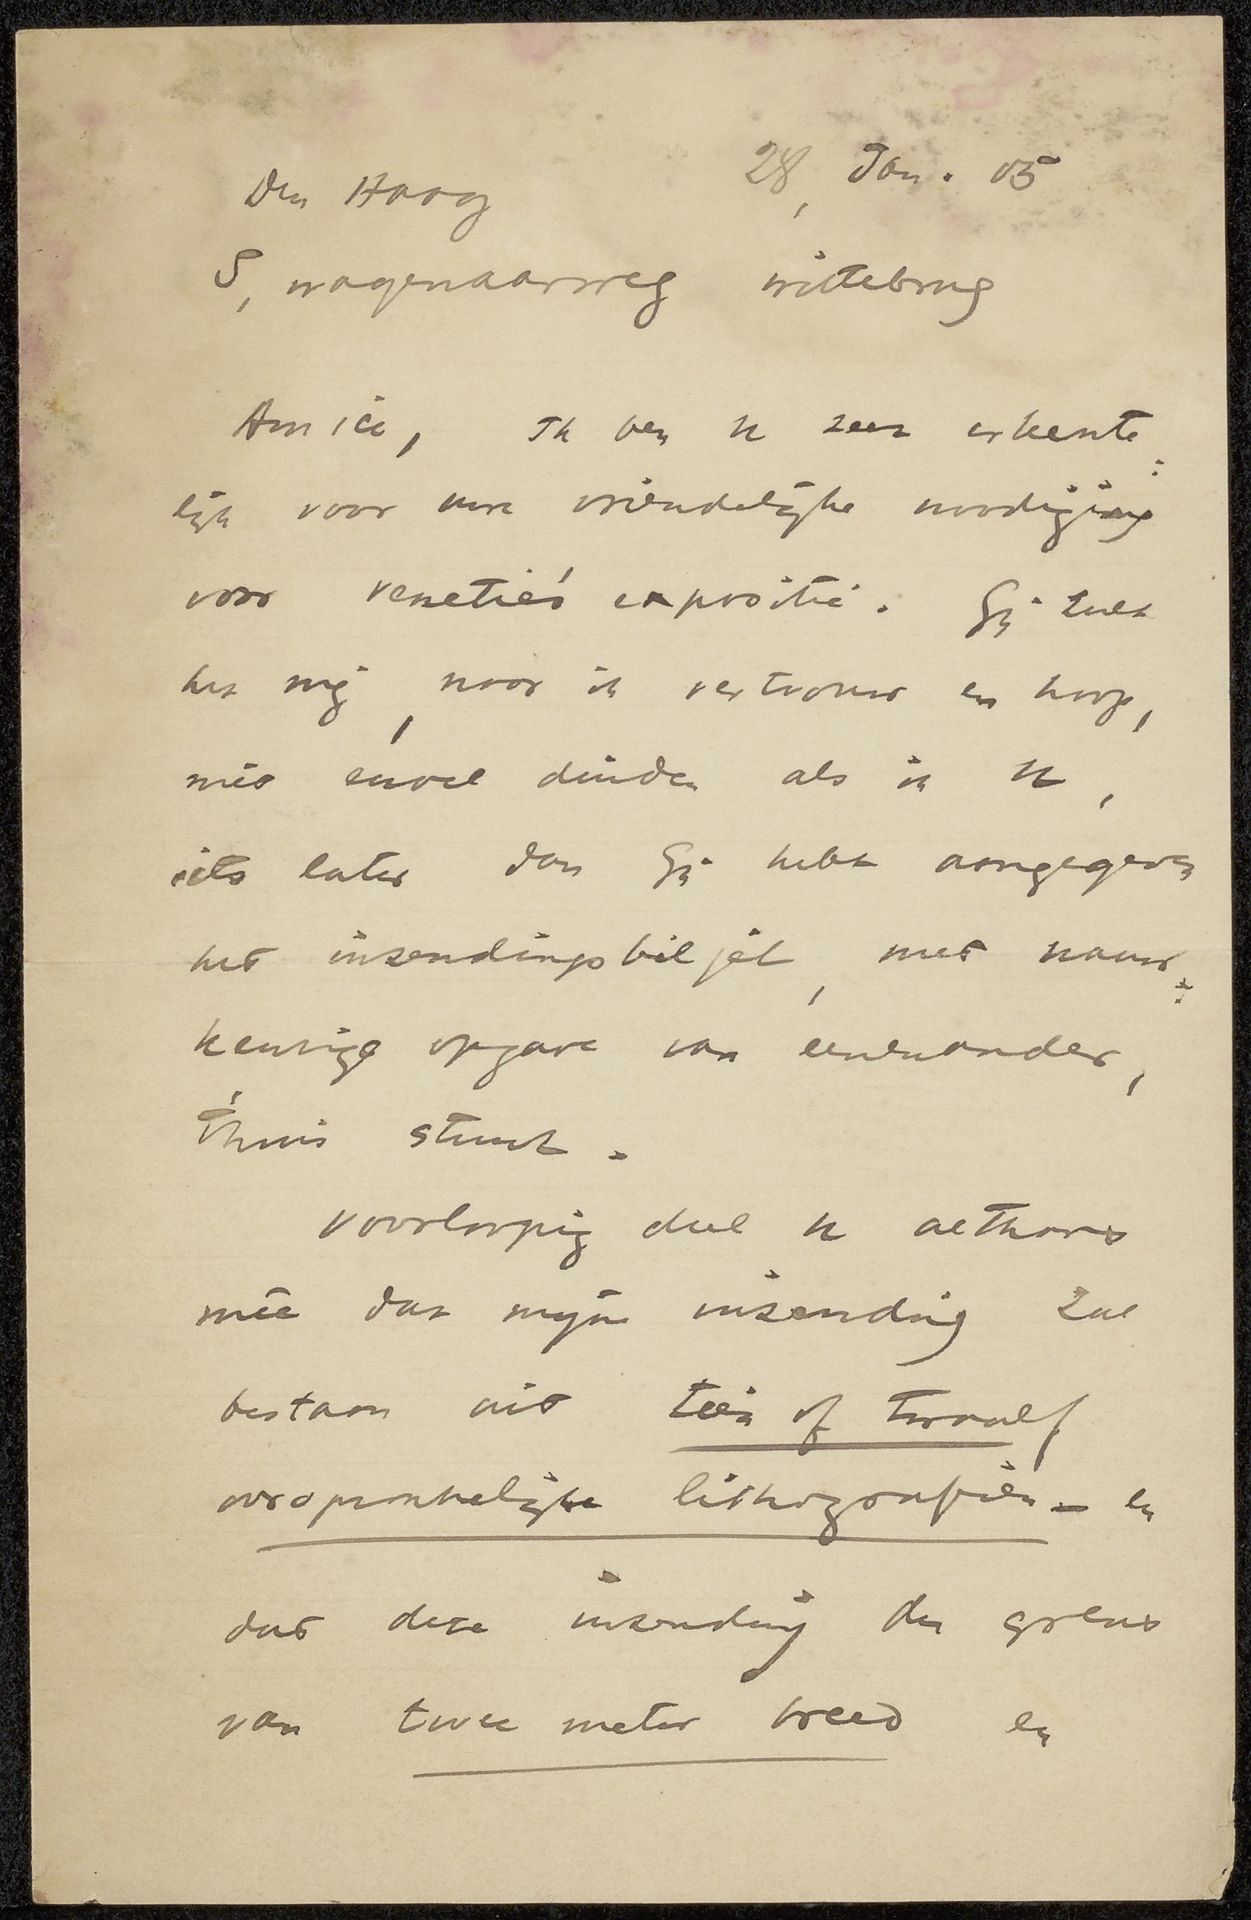 Den Haag 28, Jan. 05
5, wagenaarweg wittebrug
Amice, Ik ben U zeer erkente:
lijk voor uwe vriendelijke noodiging
voor Venetie's expositie. Gij zult
het mij, naar ik vertrouw en hoop,
niet euvel duiden als ik U,
iets later dan Gij hebt aangegeven
het inzendingsbiljet, met nauw:
keurige opgave van eenenander,
thuis stuur.
Voorloopig deel U althans
mêe dat mijne inzending zal
bestaan uit tien of twaalf
oorspronkelijke lithografiën - en
dat deze inzending de grens
van twee meter breed en